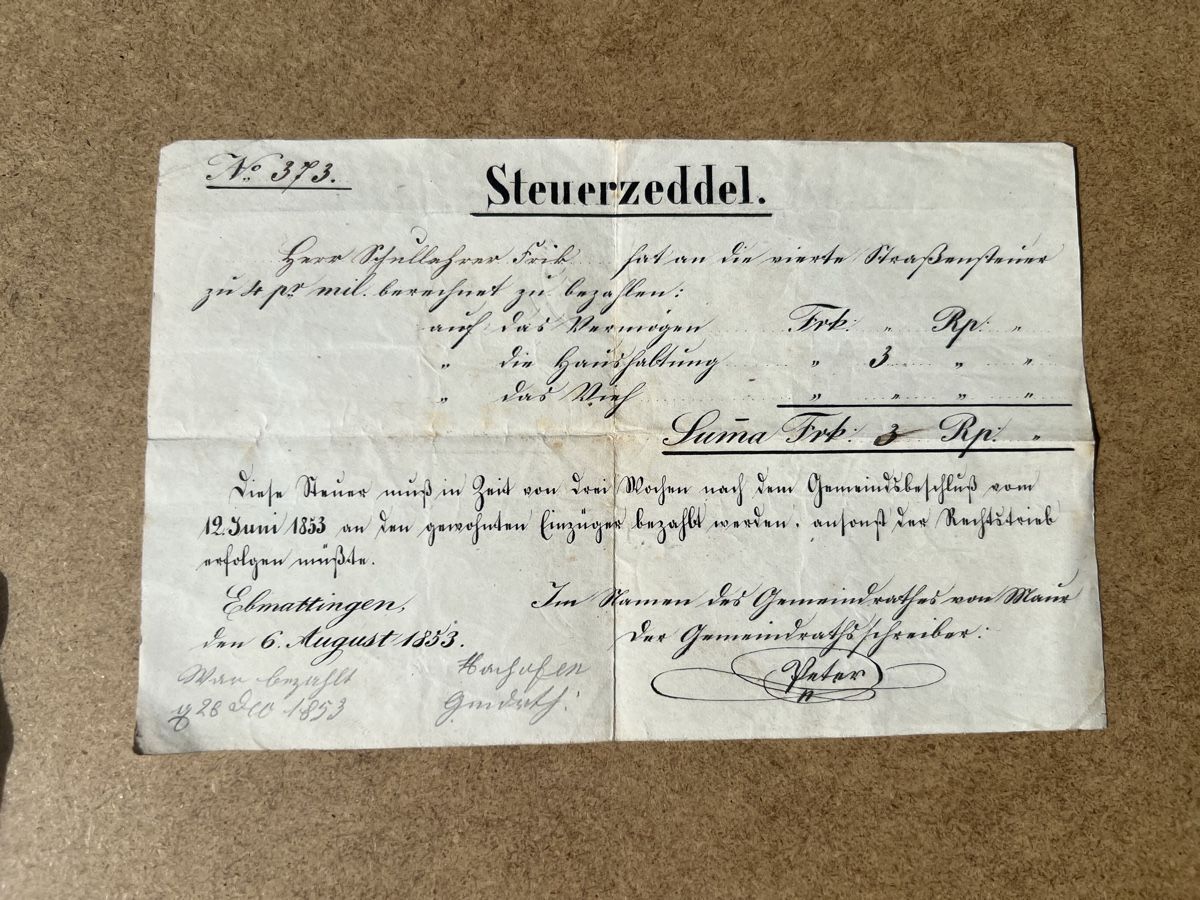 No. 373.
Steuerzeddel.
Herr Schullehrer Frik hat an die vierte Straßensteuer
zu 4 pr mil. berechnet zu bezahlen:
auf das Vermögen Frk: „ Rp: „
„ die Haushaltung „ 3 „ „
„ das Vieh „ „ „ „
Sum̅a Frk: 3 Rp: „
Diese Steuer muß in Zeit von drei Wochen nach dem Gemeindsbeschluß vom
12. Juni 1853 an den gewohnten Einzüger bezahlt werden, ansonst der Rechtstrieb
erfolgen müßte.
Ebmattingen,
den 6. August 1853.
Im Namen des Gemeindrathes von Maur
Der Gemeindrathsschreiber:
Peter
War bezahlt
28 Dec 1853
Bachofen
Gmdrath: